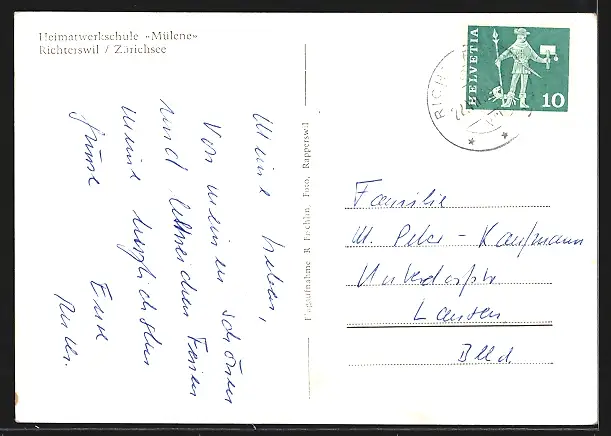 Heimatwerkschule «Mülene»
Richterswil / Zürichsee
HELVETIA
10
RICH
Meine Lieben,
Von meinen schönen
und lehrreichen Ferien
meine herzlichsten
Grüsse
Eure
Flugaufnahme R. Fuchlin, Foto, Rapperswil
Familie
M. Peter - Kaufmann
Unterdorfstr
Lausen
Blld.